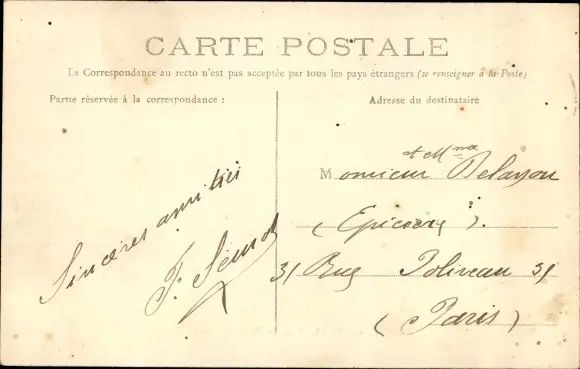 CARTE POSTALE
La Correspondance au recto n'est pas acceptée par tous les pays étrangers (se renseigner à la Poste)
Partie réservée à la correspondance :
Sincères amitiés
F.
Adresse du destinataire
et Mme
Monsieur
(Epicerie).
31 Rue Poliveau 31
(Paris)